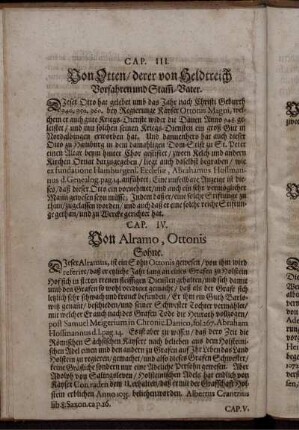 CAP. III.
Von Otten / derer von Heldtreich
Vorfahren und Stam̃-Vater.
Dieser Otto hat gelebet und das Jahr nach Christi Geburth
940. 950. 960. bey Regierunge Käyser Ottonis Magni, wel-
chem er auch gute Kriegs-Dienste wider die Dänen Anno
leistet / und mit solchen seinen Kriegs-Diensten ein groß Gut in
Nordalbingen erworben hat. Und dannenhero hat auch dieser
Otto zu Hamburg in dem damahligen Dom-Stift zu St. Peter
einen Altar beym hinter Chor gestifftet / zween Kelch und andern
Kirchen Ornat herzugegeben / liegt auch daselbst begraben / wie
ex fundatione Hamburgens. Ecclesiæ, Abrahamus Hossmannus
d. Genealog. pag. 14. anführet. Eine unfehlbare Anzeige ist die-
ses / daß dieser Otto ein vornehmer / und auch ein sehr vermüglicher
Mann gewesen seyn müsse; Indem daß er / eine solche Stifftunge zu
thun / zugelassen worden / und auch daß er eine solche reiche Stifftun-
ge gethan / und zu Wercke gerichtet hat.
CAP. IV.
Von Alramo, Ottonis
Sohne.
Dieser Alramus, ist ein Sohn Ottonis gewesen / von ihm wird
referiret / daß er etliche Jahr lang an eines Grafen zu Holstein
Hof sich in seinen treuen fleissigen Diensten gehalten / und sich damit
umb den Grafen so wohl verdienet gemacht / daß als der Graf sich
letzlich sehr schwach und kranck befunden / Er ihm ein Guth Barlo-
wig genand / beschieden / und seiner Schwester Tochter vermählet /
mit welcher Er auch nach des Grafen Tode die Heyrath vollzogen /
post Samuel Meigerium in Chronic. Danico, folio 67. Abraham
Hossmannus d. l. pag. 14. Es ist aber zu wissen / daß dero Zeit die
Römischen Sächsischen Käyser noch beliebten aus dem Holsteini-
schen Adel einen und den andern zu Grafen auf Zeit Leben das Land
Holstein zu regieren / gemachet / und also dieses Grafen Schwester /
keine Gräfliche sondern nur eine Adeliche Person gewesen. Aber
Adolph von Saltingsleven / Holsteinischen Adels hat endlich von
Käyser Conraden dem II. erhalten / daß er mit der Grafschaft Hol-
stein erblichen Anno 1030. beliehen worden. Albertus Crantzius
lib. 4. Saxon. cap. 26.
CAP. V.